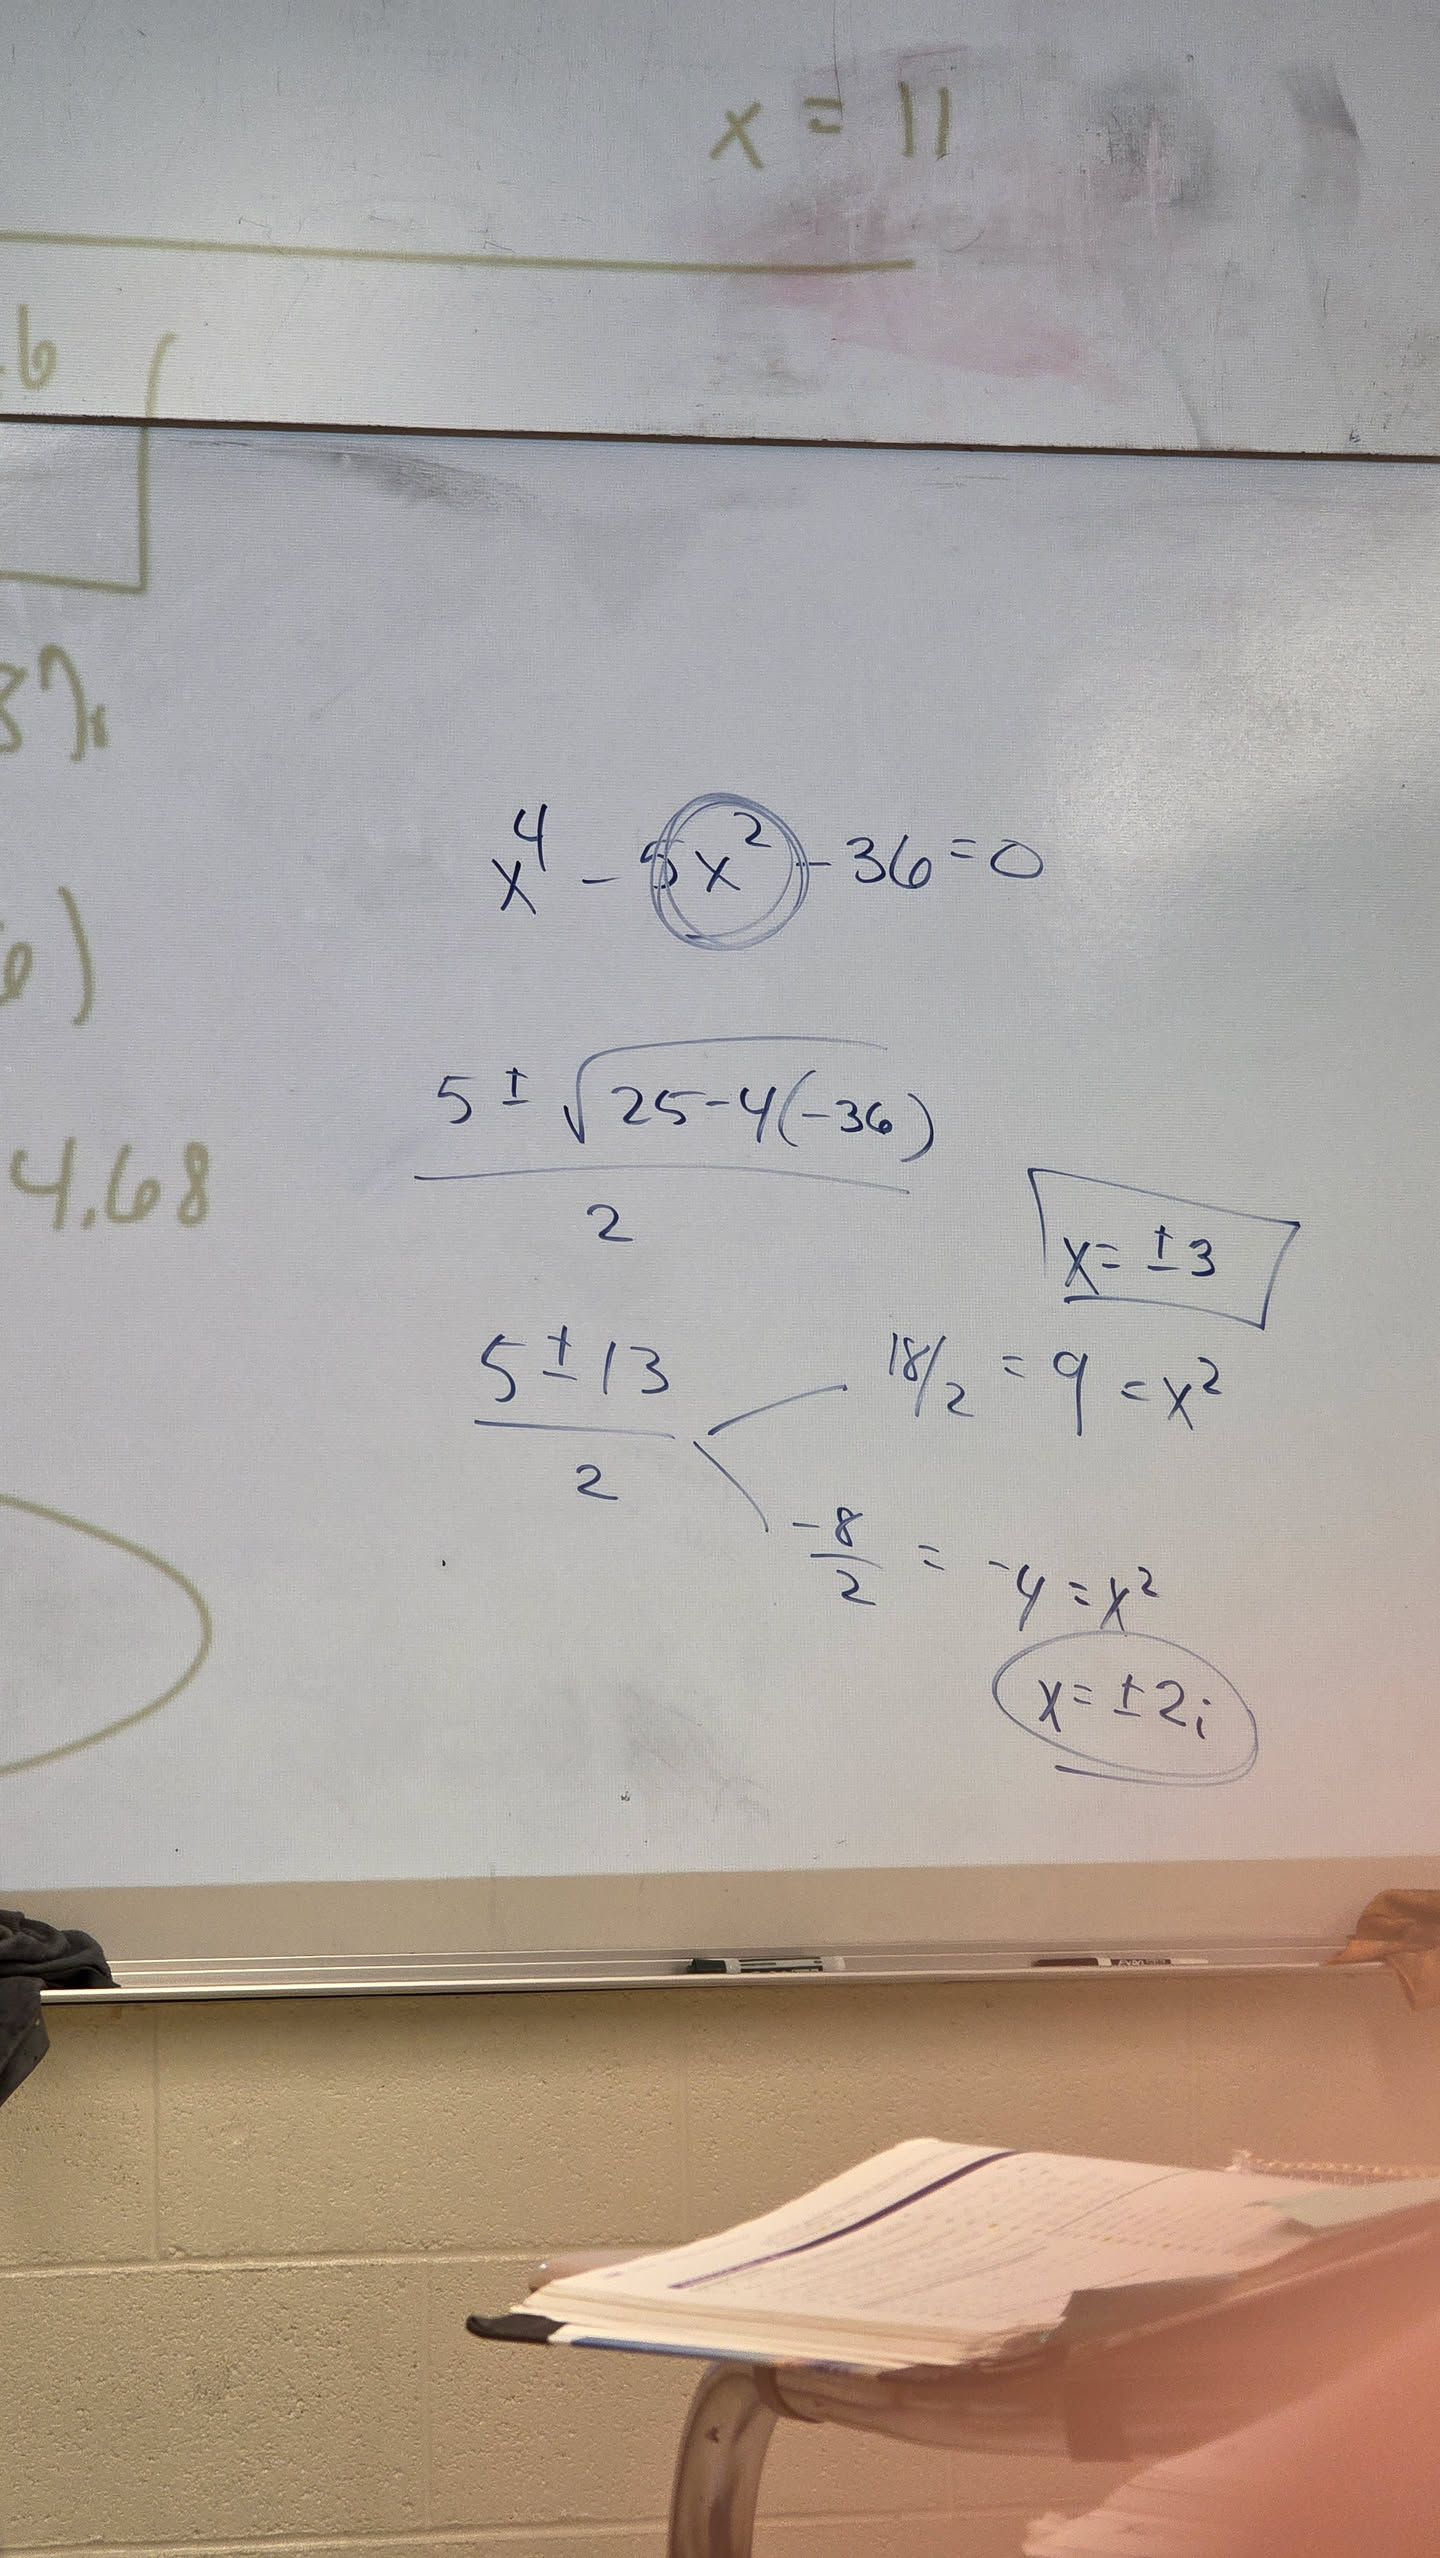 x = 11
.6
3%
6)
4.68
x⁴ - 5x² - 36 = 0
5 ± √25-4(-36)
2
x = ±3
5 ± 13
2
18/2 = 9 = x²
-8
2
= -4 = x²
x = ±2i
EXPO